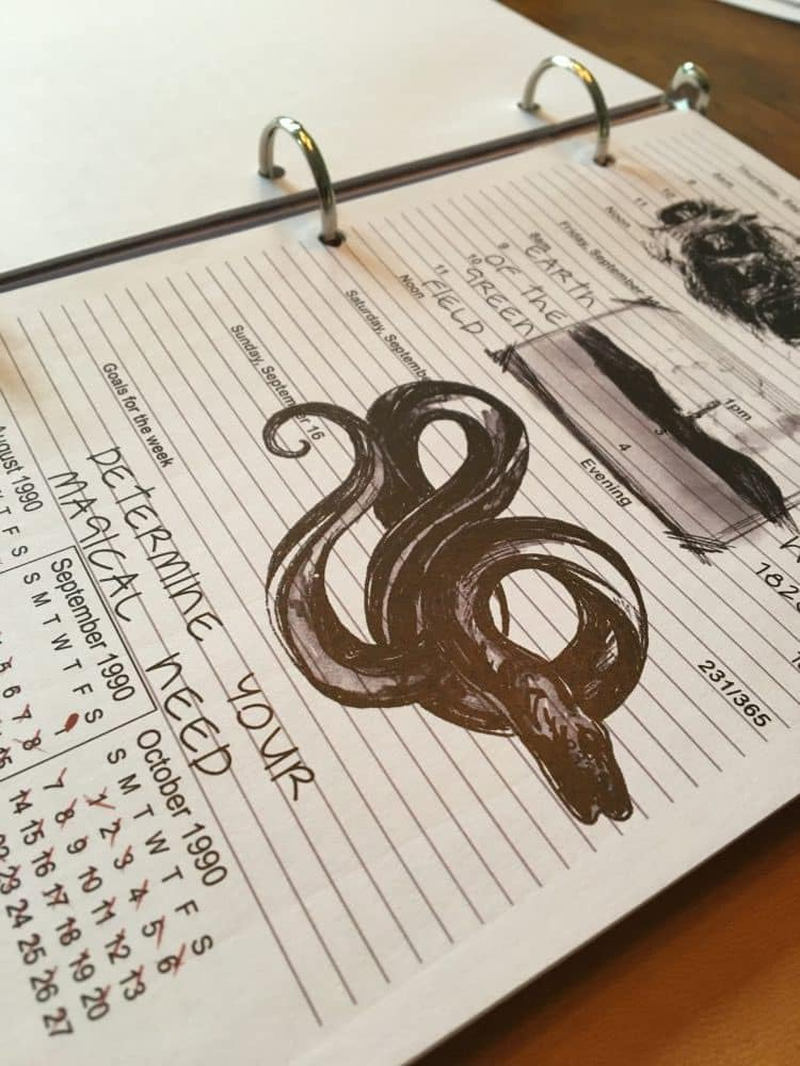 Thursday, Sep
8am
9
10
11
Noon
Friday, September
8am EARTH
9 OF the
10 GREEN
11 FIELD
Noon
1pm
3
4
Evening
182
231/365
Saturday, Septemb
Sunday, September 16
Goals for the week
DETERMINE YOUR
MAGICAL NEED
August 1990
T F S
September 1990
S M T W T F S
1
6 7 8
15
October 1990
S M T W T F S
1 2 3 4 5 6
7 8 9 10 11 12 13
14 15 16 17 18 19 20
22 23 24 25 26 27